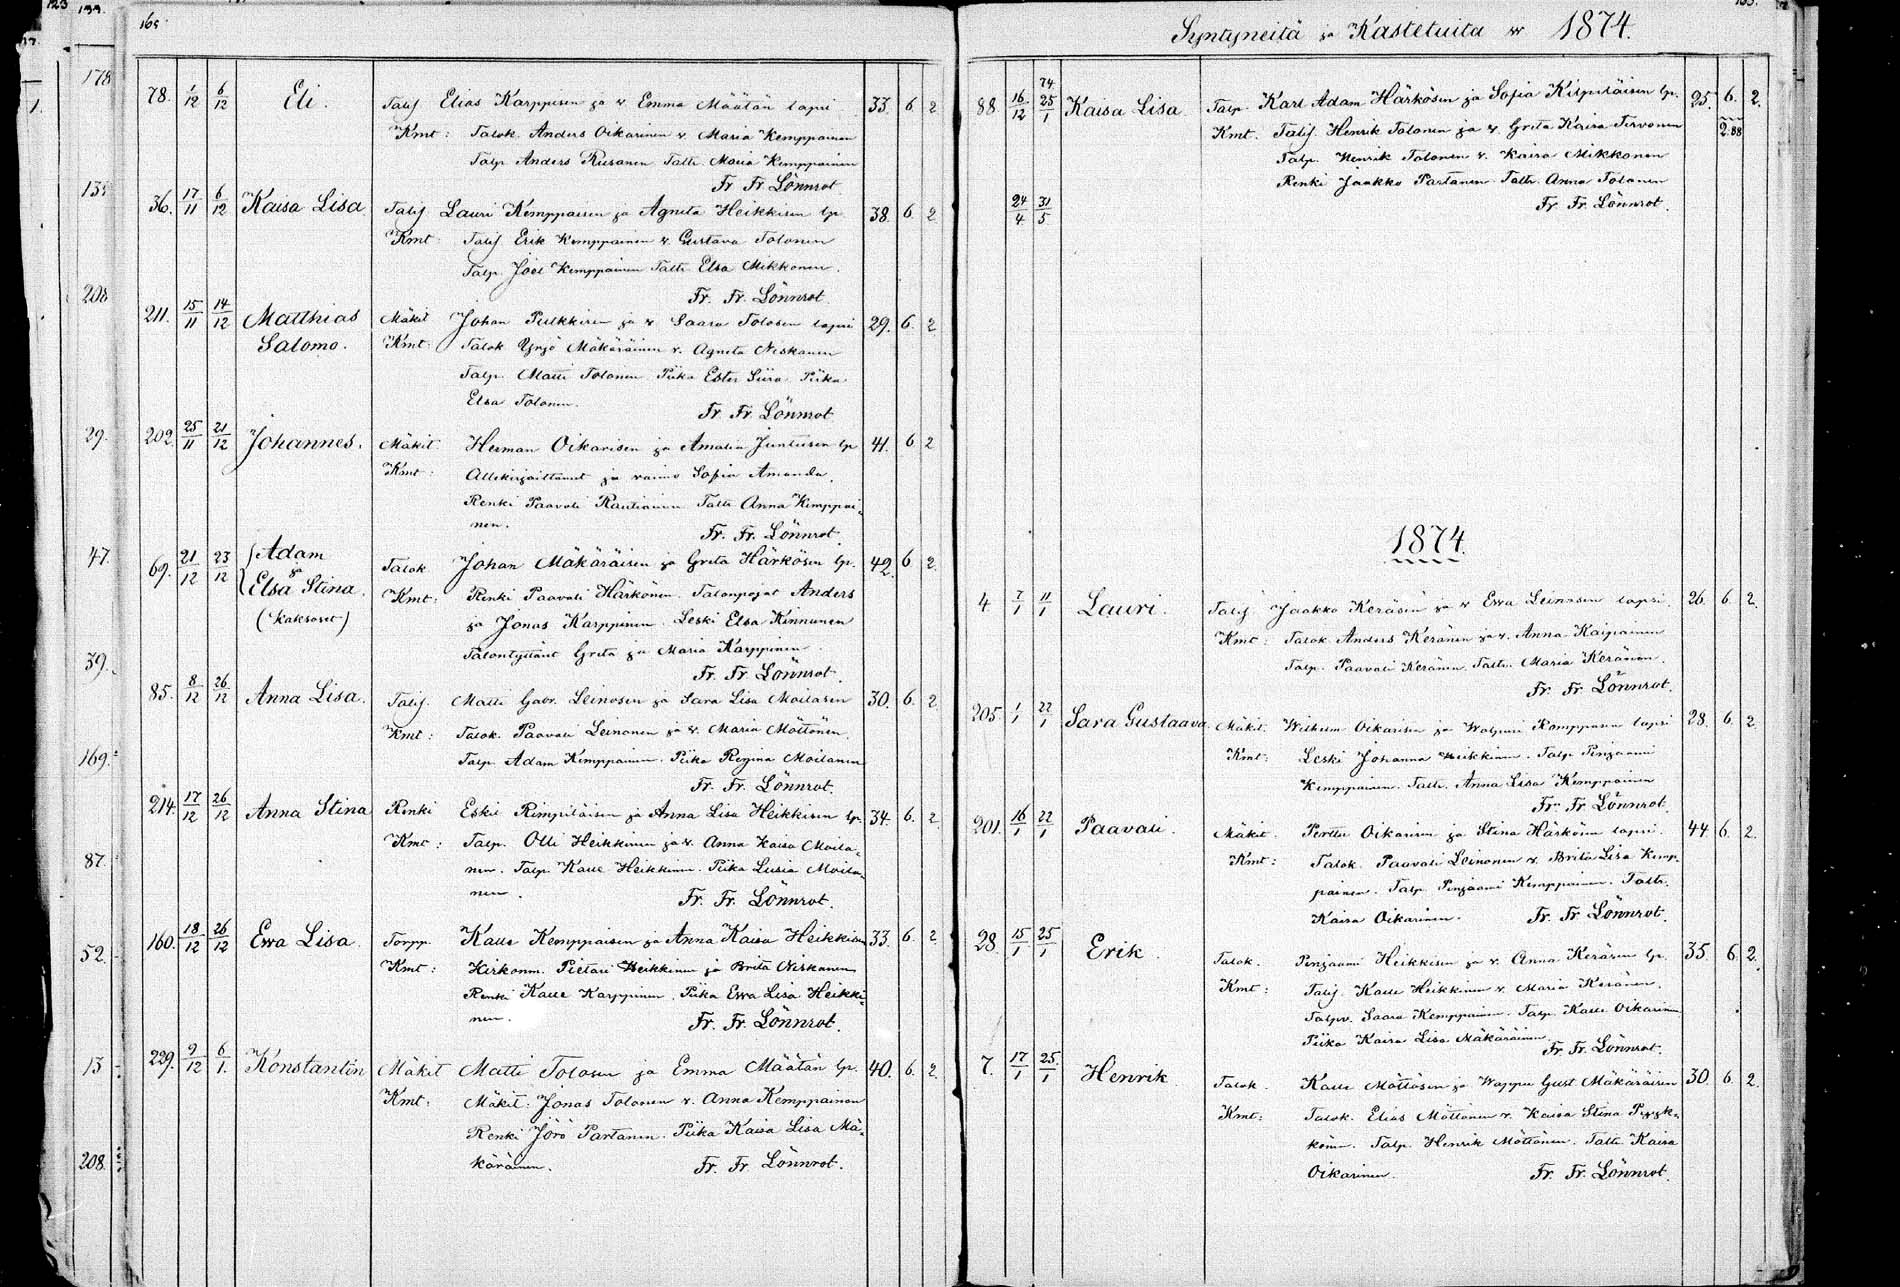 165
78. 1/12 6/12 Eli. Talij Elias Karppisen ja v. Emma Määtän lapsi 33. 6 2
Kmt: Talok. Anders Oikarinen v. Maria Kemppainen
Talp. Anders Rusanen Taltr. Maria Kemppainen
Fr Fr Lönnrot.
36. 17/11 6/12 Kaisa Lisa. Talij Lauri Kemppaisen ja Agneta Heikkisen lp. 38. 6 2
Kmt: Talij Erik Kemppainen v. Gustava Tolonen
Talp. Joel Kemppainen Taltr. Elsa Mikkonen.
Fr. Fr. Lönnrot.
211. 15/11 14/12 Matthias Mäkit Johan Pulkkisen ja v. Saara Tolosen lapsi 29. 6. 2
Salomo. Kmt: Talok Yrjö Mäkäräinen v. Agneta Niskanen
Talp. Matti Tolonen Piika Ester Siira Piika
Elsa Tolonen.
Fr. Fr. Lönnrot
202. 25/11 21/12 Johannes. Mäkit. Herman Oikarisen ja Amalia Juntusen lp 41. 6 2
Kmt: Allekirjoittanut ja vaimo Sofia Amanda.
Renki Paavali Rautiainen Taltr Anna Kemppai-
nen.
Fr. Fr. Lönnrot.
69. 21/12 23/12 Adam ja Talok Johan Mäkäräisen ja Greta Härkösen lp. 42. 6 2.
Elsa Stina. Kmt: Renki Paavali Härkönen. Talonpojat Anders
(kaksoset) ja Jonas Karppinen. Leski Elsa Kinnunen
Talontyttäret Greta ja Maria Karppinen.
Fr. Fr. Lönnrot.
85. 8/12 26/12 Anna Lisa. Talij. Matti Gabr. Leinosen ja Sara Lisa Moilasen 30. 6. 2
Kmt: Talok. Paavali Leinonen ja v. Maria Möttönen.
Talp. Adam Kemppainen. Piika Regina Moilanen
Fr. Fr. Lönnrot.
214. 17/12 26/12 Anna Stina Renki Eskil Rimpiläisen ja Anna Lisa Heikkisen lp. 34. 6. 2
Kmt: Talp. Olli Heikkinen ja v. Anna Kaisa Moila-
nen. Talp Kalle Heikkinen. Piika Lusia Moila-
nen.
Fr. Fr. Lönnrot.
160. 18/12 26/12 Ewa Lisa. Torpp. Kalle Kemppaisen ja Anna Kaisa Heikkisen 33. 6. 2
Kmt: Kirkonm. Pietari Heikkinen ja Brita Niskanen
Renki Kalle Karppinen. Piika Ewa Lisa Heikki-
nen.
Fr. Fr. Lönnrot.
229. 9/12 6/1. Konstantin Mäkit Matti Tolosen ja Emma Määtän lp. 40. 6. 2
Kmt: Mäkit: Jonas Tolonen v. Anna Kemppainen
Renki Jörö Partanen. Piika Kaisa Lisa Mä-
käräinen.
Fr. Fr. Lönnrot.
178
208
29.
47.
39.
169.
87.
52.
13
208.
Syntyneitä ja Kastetuita v 1874.
88 16/12 74 25/1 Kaisa Lisa Talp. Karl Adam Härkösen ja Sofia Kilpiläisen lp. 25. 6. 2.
Kmt. Talij. Henrik Tolonen ja v. Greta Kaisa Tervonen 2.88
Talp. Henrik Tolonen v. Kaisa Mikkonen
Renki Jaakko Partanen Taltr. Anna Tolonen
24/4 31/5 Fr. Fr. Lönnrot.
1874.
4 7/1 11/1 Lauri. Talij Jaakko Keräsen ja v Ewa Leinosen lapsi. 26. 6. 2.
Kmt: Talok. Anders Keränen ja v. Anna Kaipainen
Talp. Paavali Keränen. Taltr. Maria Keränen.
Fr. Fr. Lönnrot.
205 1/1 22/1 Sara Gustaava. Mäkit. Wilhelm Oikarisen ja Walpuri Kemppaisen lapsi 28. 6. 2
Kmt: Leski Johanna Heikkinen. Talp. Pinjaami
Kemppainen. Taltr. Anna Lisa Kemppainen
Fr. Fr. Lönnrot.
201. 16/1 22/1 Paavali. Mäkit. Perttu Oikarisen ja Stina Härkösen lapsi. 44. 6. 2.
Kmt: Talok. Paavali Leinonen v. Brita Lisa Kemp-
painen. Talp Pinjaami Kemppainen. Taltr.
Kaisa Oikarinen. Fr. Fr. Lönnrot.
28 15/1 25/1 Erik. Talok. Pinjaami Heikkisen ja v. Anna Keräsen lp. 35. 6. 2.
Kmt: Talij. Kalle Heikkinen v. Maria Keränen.
Talpv. Saara Kemppainen. Talp. Kalle Oikarinen
Piika Kaisa Lisa Mäkäräinen.
Fr. Fr. Lönnrot.
7. 17/1 25/1 Henrik Talok. Kalle Möttösen ja Wappu Gust Mäkäräisen 30. 6. 2.
Kmt: Talok. Elias Möttönen v. Kaisa Stina Pyyk-
könen. Talp. Henrik Möttönen. Taltr Kaisa
Oikarinen. Fr. Fr. Lönnrot.